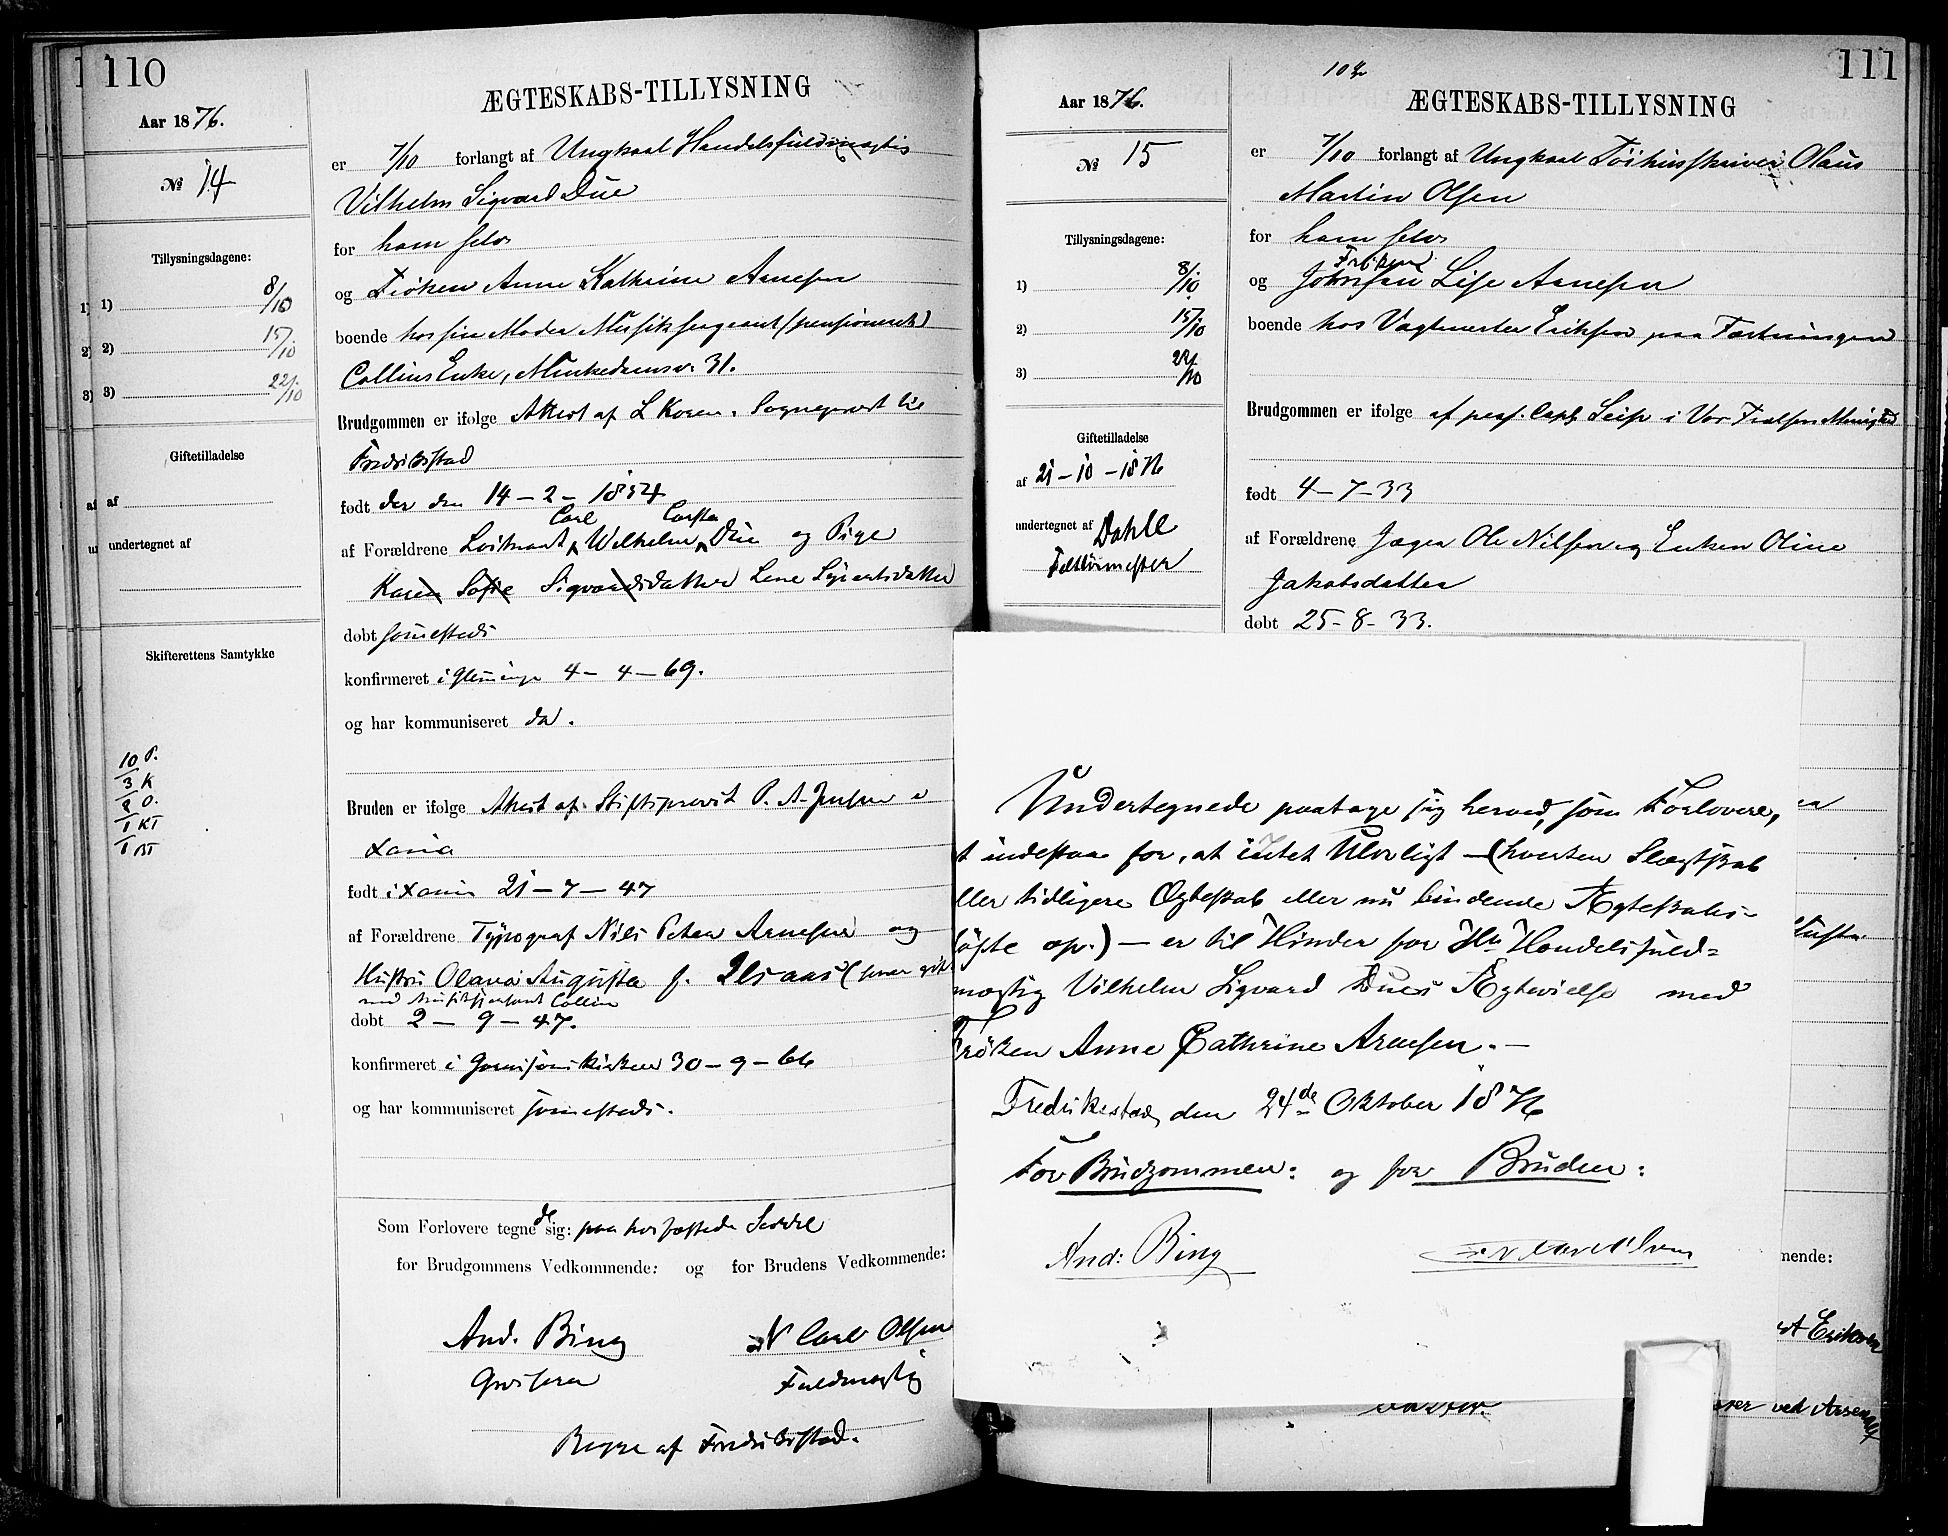 110
Aar 1876.
№ 14
Tillysningsdagene:
1) 8/10
2) 15/10
3) 22/10
Giftetilladelse
af
undertegnet af
Skifterettens Samtykke
10 P.
3 K
8 O.
1 KT
1 BT
ÆGTESKABS-TILLYSNING
er 7/10 forlangt af Ungkaal Handelsfuldmægtig
Vilhelm Sigvard Due
for ham selv
og Frøken Anne Kathrine Arnesen
boende hos sin Moder Musiksergeant (pensioneret)
Collins Enke, Munkedamsv. 31.
Brudgommen er ifølge Attest af L Koren, Sogneprest til
Fredrikstad
født der den 14-2-1854
Carl Carsten
af Forældrene Løitnant Wilhelm Due og Pige
Karen Sofie Sigvardsdatter Lene Sivertsdatter
døbt sammesteds
konfirmeret i Glemminge 4-4-69.
og har kommuniseret da.
Bruden er ifølge Attest af Stiftsprovst P. A. Jensen i
Xania
født i Xania 21-7-47
af Forældrene Typograf Nils Peter Arnesen og
Hustru Olava Augusta f.
med Musiksersjant Collin
døbt 2-9-47.
konfirmeret i Garnisonskirken 30-9-66
og har kommuniseret sammesteds.
Som Forlovere tegnede sig: paa hosfæstede Seddel
for Brudgommens Vedkommende: og for Brudens Vedkommende:
And. Bing N Carl Olsen
Grosserer Fuldmægtig
Begge af Fredrikstad.
111
Aar 1876.
№ 15
Tillysningsdagene:
1) 8/10
2) 15/10
3) 22/10
Giftetilladelse
af 21-10-1876
undertegnet af Dahll
ÆGTESKABS-TILLYSNING
er 7/10 forlangt af Ungkaal Tøihusskriver Olaus
Martin Olsen
for ham selv
og Lise Arnesen
boende hos Vagtmester Eriksen paa Fæstningen
Brudgommen er ifølge af pers. Capl. Seip i Vor Frelsers Menighed
født 4-7-33
af Forældrene Jæger Ole Nilsen og Enken Oline
Jakobsdatter
døbt 25-8-33.
Undertegnede paatage sig herved, som Forlovere,
t indestaa for, at intet Ulovligt - (hverken Slægtskab
ller tidligere Ægteskab eller nu bindende Ægteskabs-
løfte op.) - er til Hinder for Hr Handelsfuld-
mægtig Vilhelm Sigvard Dues Ægtevielse med
Frøken Anne Cathrine Arnesen. -
Fredrikstad, den 24de Oktober 1876
For Brudgommen: og for Bruden:
And: Bing
mende:
Eriksen
ved Arsenalet